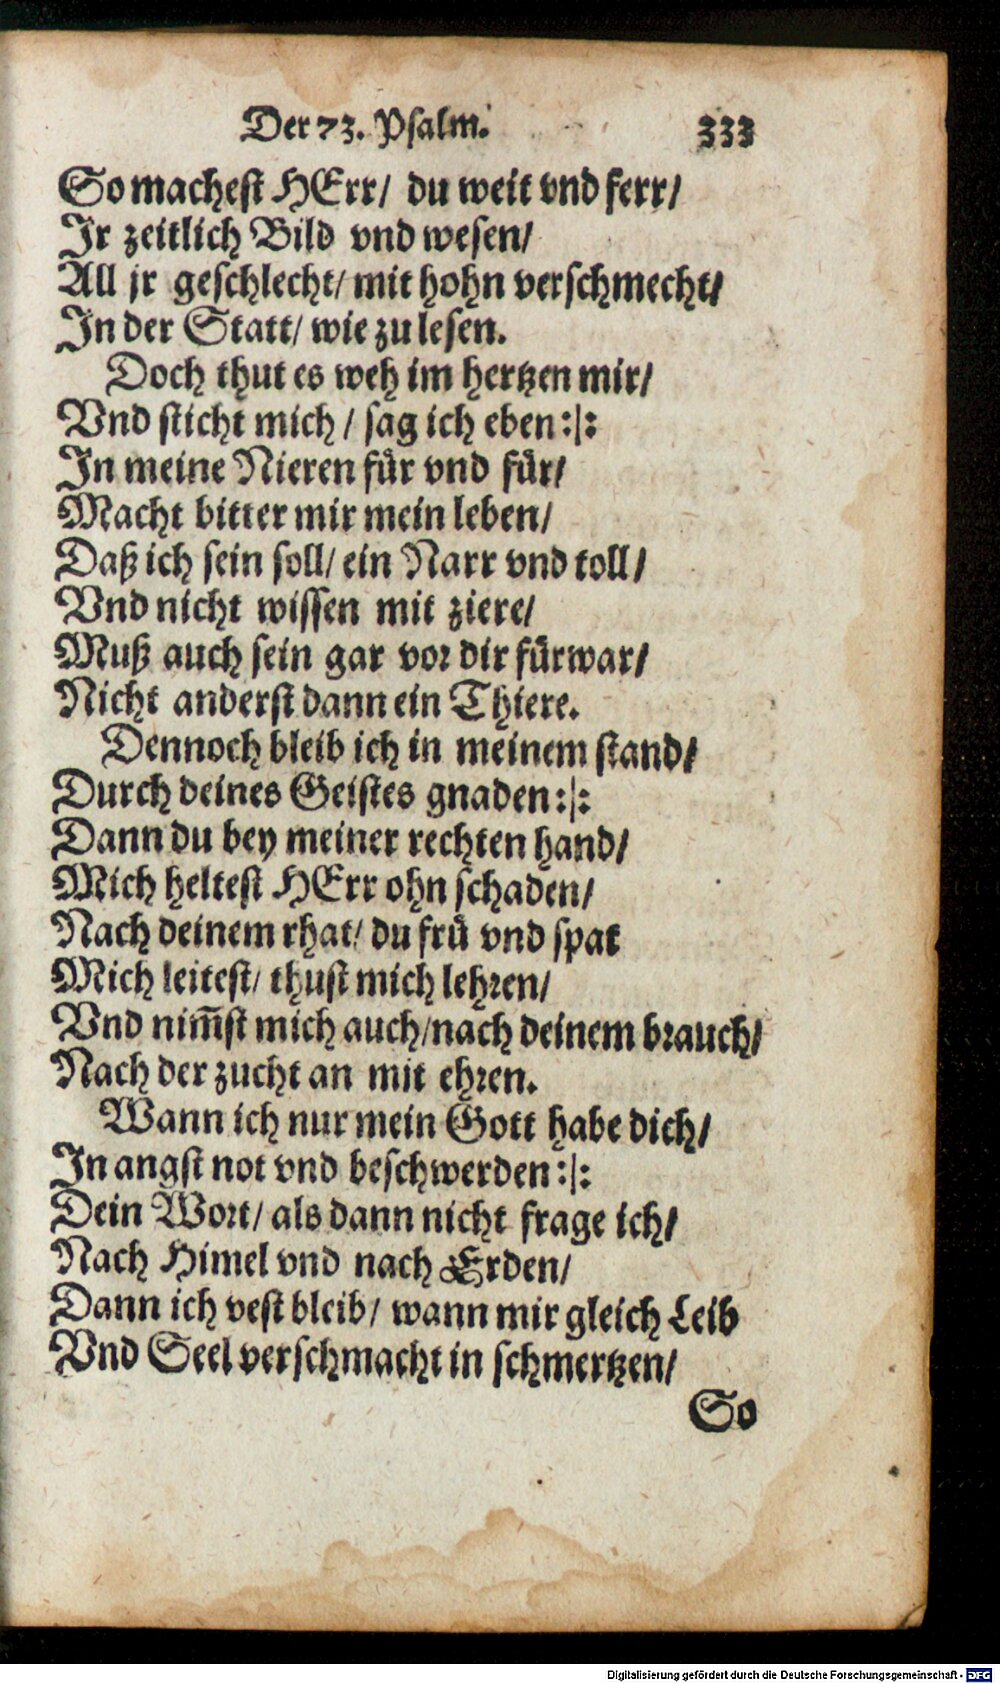 Der 73. Psalm. 333
So machest HErr/ du weit vnd ferr/
Ir zeitlich Bild vnd wesen/
All jr geschlecht/ mit hohn verschmecht/
In der Statt/ wie zu lesen.
Doch thut es weh im hertzen mir/
Vnd sticht mich / sag ich eben:|:
In meine Nieren für vnd für/
Macht bitter mir mein leben/
Daß ich sein soll/ ein Narr vnd toll/
Vnd nicht wissen mit ziere/
Muß auch sein gar vor dir fürwar/
Nicht anderst dann ein Thiere.
Dennoch bleib ich in meinem stand/
Durch deines Geistes gnaden:|:
Dann du bey meiner rechten hand/
Mich heltest HErr ohn schaden/
Nach deinem rhat/ du frü vnd spat
Mich leitest/ thust mich lehren/
Vnd nim̃st mich auch/nach deinem brauch/
Nach der zucht an mit ehren.
Wann ich nur mein Gott habe dich/
In angst not vnd beschwerden:|:
Dein Wort/ als dann nicht frage ich/
Nach Himel vnd nach Erden/
Dann ich vest bleib/ wann mir gleich Leib
Vnd Seel verschmacht in schmertzen/
So
Digitalisierung gefördert durch die Deutsche Forschungsgemeinschaft - DFG